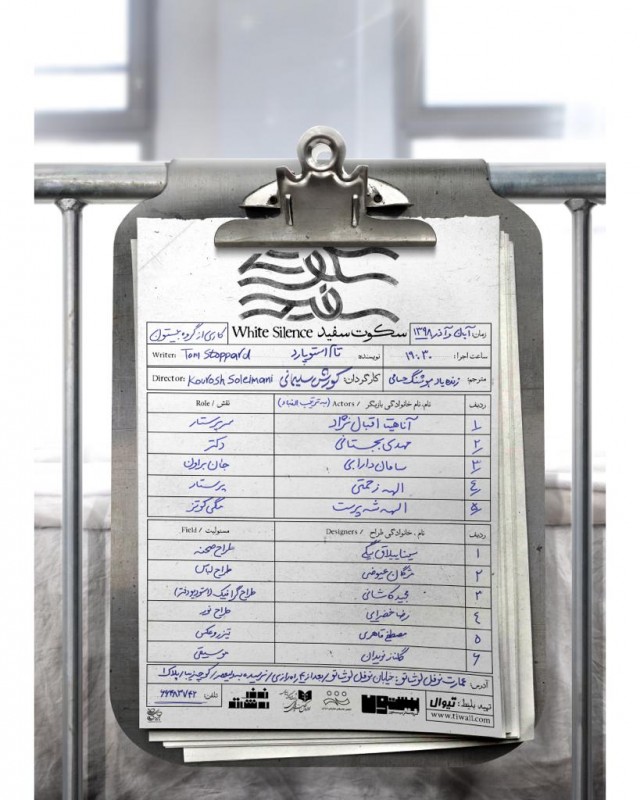 سکوت سفید
زمان: آبان و آذر ۱۳۹۸ سکوت سفید White Silence کاری از گروه بیستون
ساعت اجرا: ۱۹:۳۰ نویسنده: تام استوپارد Writer: Tom Stoppard
مترجم: زنده یاد هوشنگ حسامی کارگردان: کورش سلیمانی Director: Kourosh Soleimani
ردیف نام، نام خانوادگی بازیگر / Actors (به ترتیب الفبا) نقش / Role
۱ آناهیتا اقبال نژاد سرپرستار
۲ مهدی بجستانی دکتر
۳ سامان دارابی جان براون
۴ الهه زحمتی پرستار
۵ الهه شه پرست مگی کوتز
ردیف نام، خانوادگی طراح / Designers مسئولیت / Field
۱ سینا ییلاق بیگی طراح صحنه
۲ مژگان عیوضی طراح لباس
۳ مجید کاشانی طراح گرافیک (استودیو دفتر)
۴ رضا خضرایی طراح نور
۵ مصطفی قاهری تیزر و عکس
۶ گلناز نویدان موسیقی
آدرس: عمارت نوفل لوشاتو: خیابان نوفل لوشاتو، بعد از چهارراه رازی، نرسیده به ولیعصر، کوچه زیبا، پلاک ۱
تهیه بلیط: تیوال
www.tiwall.com
تلفن: